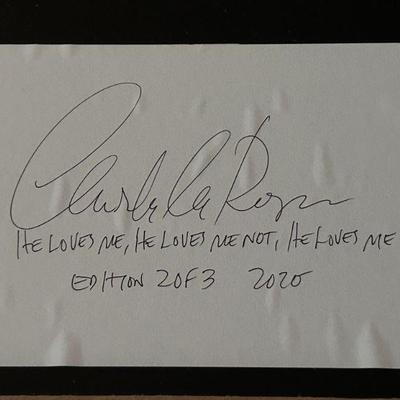 HE LOVES ME, HE LOVES ME NOT, HE LOVES ME
EDITION 2 OF 3 2020